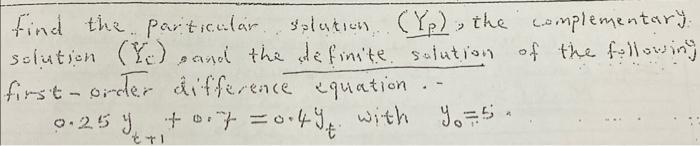 find the particular solution (Yp), the complementary
solution (Yc), and the definite solution of the following
first-order difference equation.-
0.25 y_{t+1} + 0.7 = 0.4y_t with y_0=5.